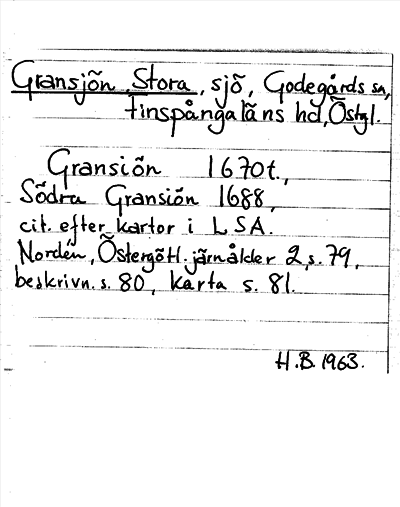 Gransjön, Stora, sjö, Godegårds sn,
Finspånga läns hd, Östgl.
Gransiön 1670t.,
Södra Gransiön 1688,
cit. efter kartor i LSA.
Nordén, Östergötl. järnålder 2, s. 79,
beskrivn. s. 80, karta s. 81.
H.B. 1963.